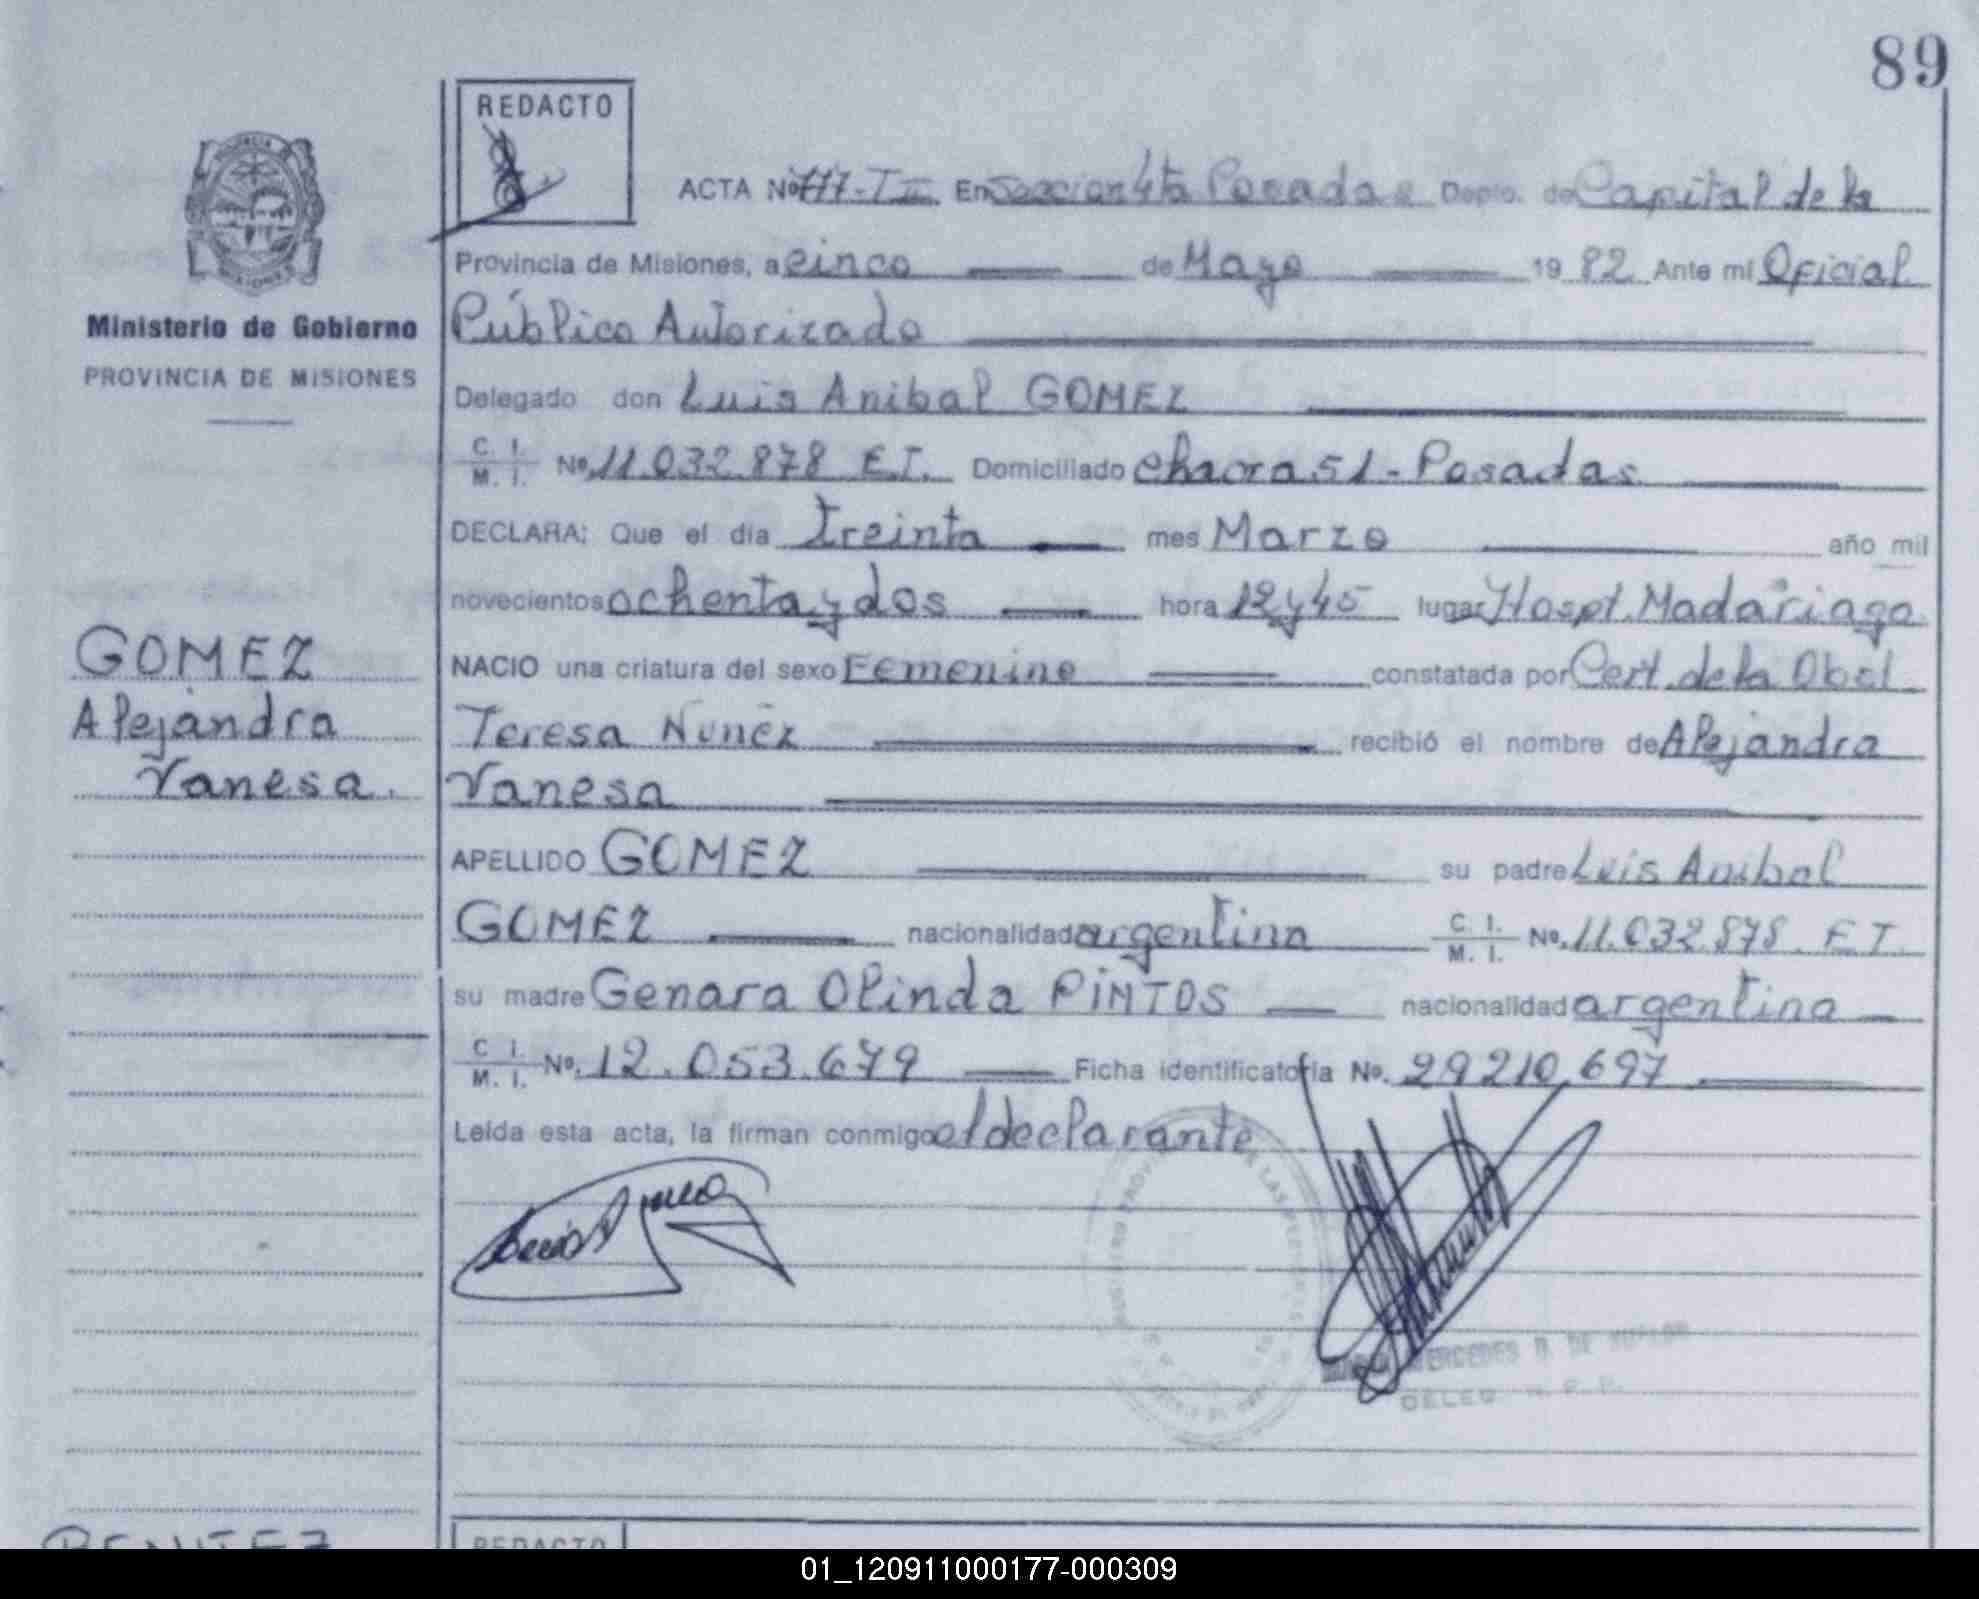 89
REDACTO
ACTA Nº 777-T II En Seccion 4ta Posadas Depto. de Capital de la
Provincia de Misiones, a cinco de Mayo 19 82 Ante mí Oficial
Ministerio de Gobierno
Público Autorizado
PROVINCIA DE MISIONES
Delegado don Luis Anibal GOMEZ
C. I. M. I. Nº 11.032.878 E.T. Domiciliado Chacra 51 - Posadas
DECLARA; Que el día treinta mes Marzo año mil
novecientos ochenta y dos hora 12 y 45 lugar Hospt. Madariaga
GOMEZ
Alejandra
Vanesa.
NACIO una criatura del sexo Femenino constatada por Cert. de la Obst
Teresa Nuñez recibió el nombre de Alejandra
Vanesa
APELLIDO GOMEZ su padre Luis Anibal
GOMEZ nacionalidad argentina C. I. M. I. Nº. 11.032.878. E T.
su madre Genara Olinda PINTOS nacionalidad argentina
C I. M. I. Nº. 12.053.679 Ficha identificatoria Nº. 29210,697
Leída esta acta, la firman conmigo el declarante
MERCEDES R. DE
DELEG. R. P. P.
BENITEZ
REDACTO
01_120911000177-000309